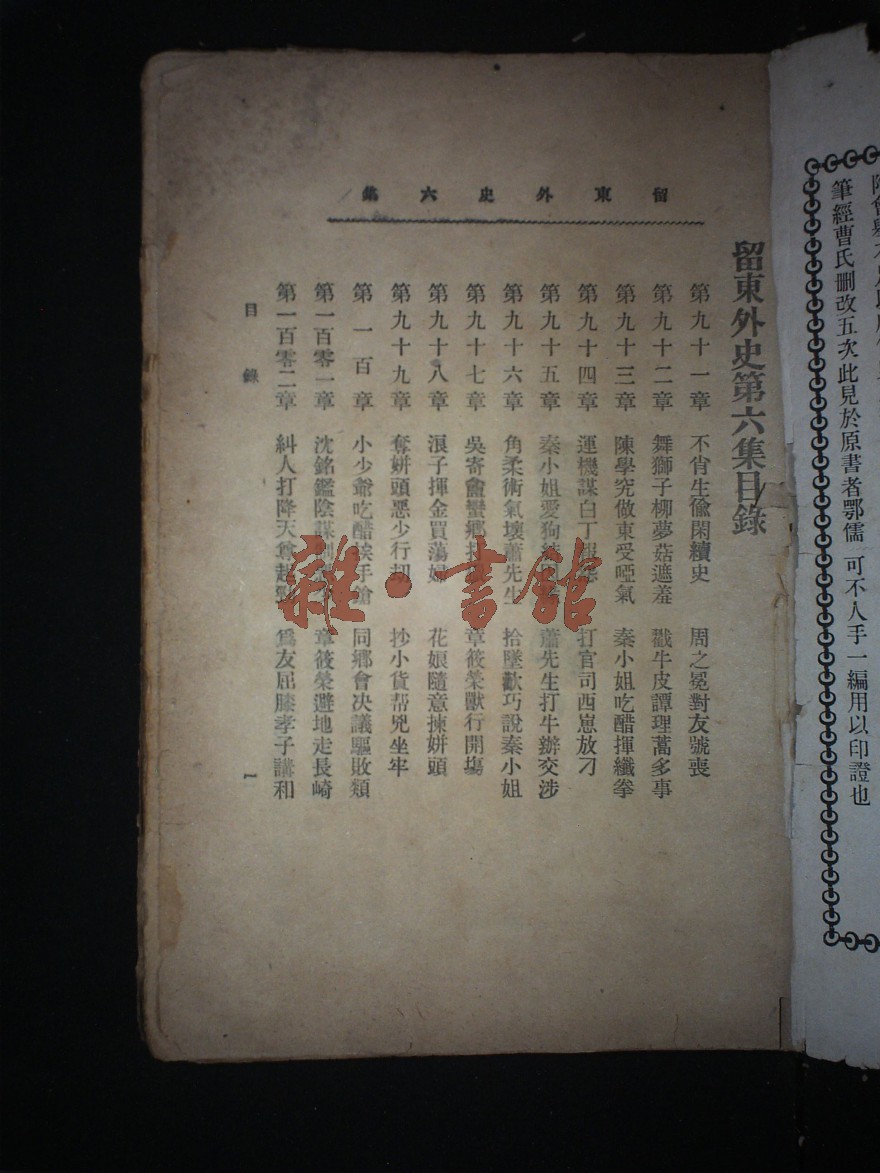 留東外史六集
留東外史第六集目錄
第九十一章 不肖生偸閑續史 周之冕對友號喪
第九十二章 舞獅子柳夢菇遮羞 戳牛皮譚理蒿多事
第九十三章 陳學究做東受啞氣 秦小姐吃醋揮纖拳
第九十四章 運機謀白丁 打官司西崽放刁
第九十五章 秦小姐愛狗 蕭先生打牛辦交涉
第九十六章 角柔術氣壞蕭先生 拾墜歡巧說秦小姐
第九十七章 吳寄盦蠻鄉 章筱榮獸行開場
第九十八章 浪子揮金買蕩婦 花娘隨意揀姘頭
第九十九章 奪姘頭惡少行刼 抄小貨幫兇坐牢
第一百章 小少爺吃醋挨手鎗 同鄉會決議驅敗類
第一百零一章 沈銘鑑陰謀 章筱榮避地走長崎
第一百零二章 糾人打降天尊起 爲友屈膝孝子講和
目錄 1
雜·書館
筆經曹氏刪改五次此見於原書者鄂儒 可不人手一編用以印證也